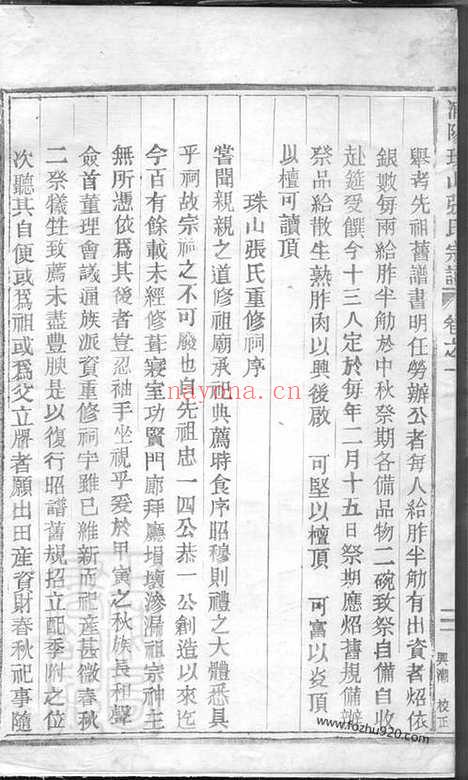 浦陽珠山張氏宗譜 卷之一
舉考先祖舊譜晝明任勞辦公者每人給胙半觔有出資者炤依
銀數每兩給胙半觔於中秋祭期各備品物二碗致祭自備自收
赴筵受饌今十三人定於每年二月十五日祭期應炤舊規備辦
祭品給散生熟胙肉以興後啟 可堅以檀頂 可富以炎頂
以檀可讀頂
珠山張氏重修祠序
嘗聞親親之道修祖廟承祀典薦時食序昭穆則禮之大體悉具
乎祠故宗祠之不可廢也自先祖忠一四公恭一公創造以來迄
今百有餘載未經修葺寢室功賢門廊拜廳塌壞滲漏祖宗神主
無所憑依為其後者豈忍袖手坐視乎爰於甲寅之秋族長和聲
僉首董理會議通族派資重修祠宇雖已維新而祀產甚微春秋
二祭犧牲致薦未盡豐腆是以復行昭譜舊規招立配季附之位
次聽其自便或為祖或為父立牌者願出田產資財春秋祀事隨
興潮 校正
nayona.cn
www.fozhu920.com